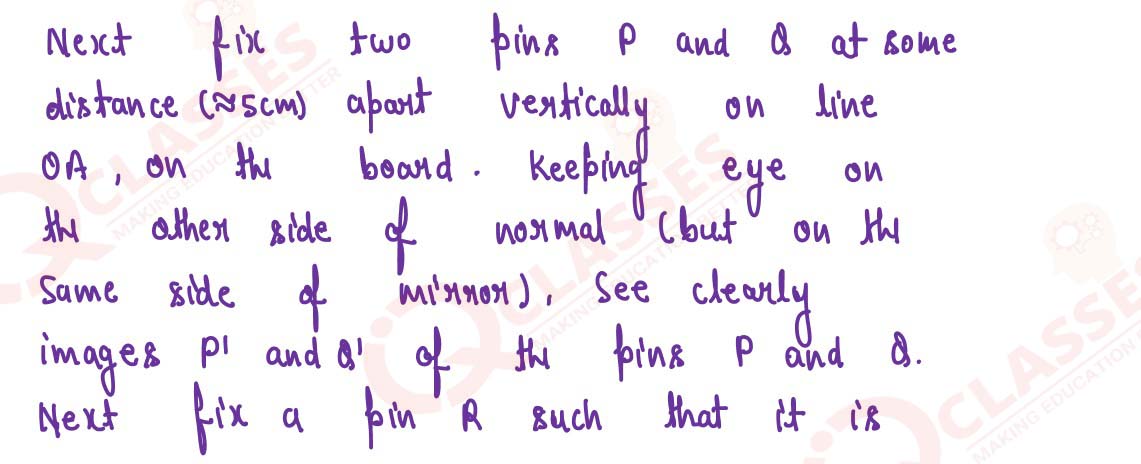 Next fix two pins P and Q at some
distance (≈5cm) apart vertically on line
OA, on the board. Keeping eye on
the other side of normal (but on the
same side of mirror), see clearly
images P' and Q' of the pins P and Q.
Next fix a pin R such that it is
CLASSES
MAKING EDUCATION BETTER
CLASSES
MAKING EDUCATION BETTER
CLASSES
MAKING EDUCATION